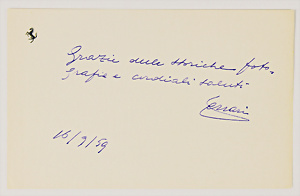 Grazie delle storiche foto-
grafie e cordiali saluti
Ferrari
16/9/59